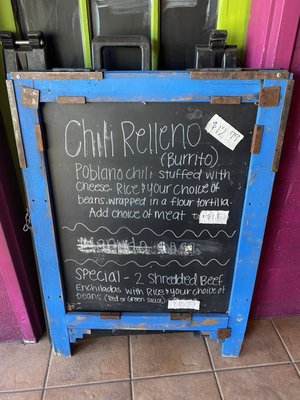 Chili Relleno
(Burrito)
$12.99
Poblano chili stuffed with
cheese Rice & your choice of
beans. wrapped in a flour tortilla.
Add choice of meat
Special - 2 Shredded Beef
Enchiladas with Rice & your choice of
beans (Red or Green sauce)